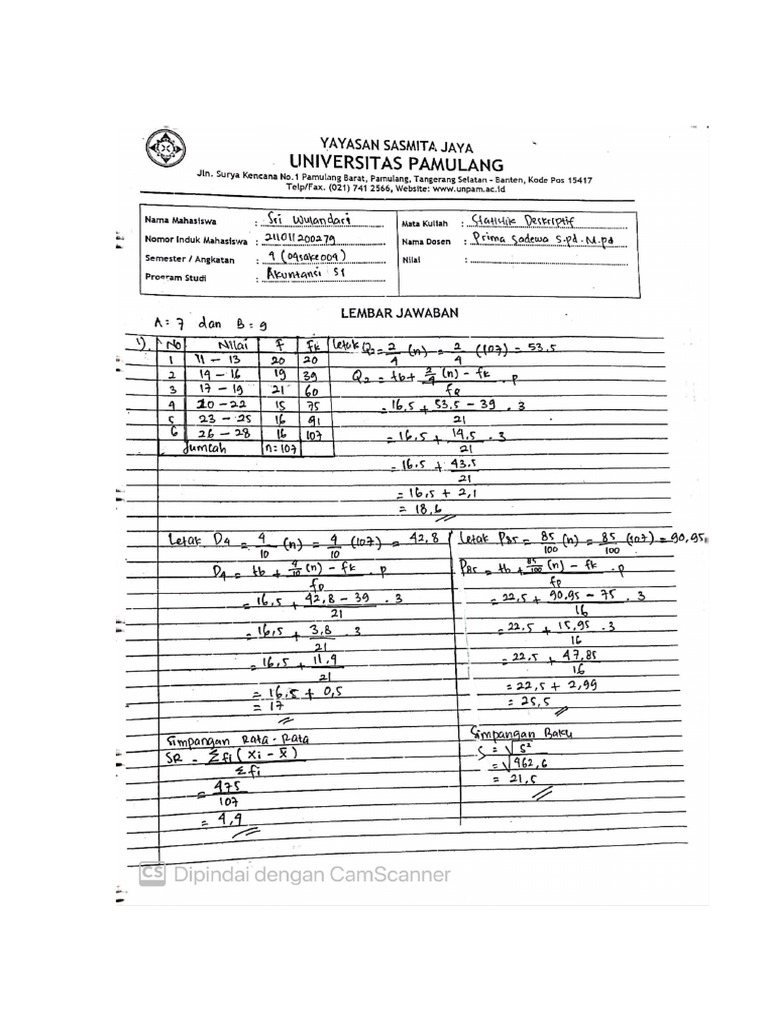 YAYASAN SASMITA JAYA
UNIVERSITAS PAMULANG
Jln. Surya Kencana No.1 Pamulang Barat, Pamulang, Tangerang Selatan - Banten, Kode Pos 15417
Telp/Fax. (021) 741 2566, Website: www.unpam.ac.id
Nama Mahasiswa : Sri Wulandari
Nomor Induk Mahasiswa : 211011200279
Semester / Angkatan : 4 (04sake009)
Program Studi : Akuntansi S1
Mata Kuliah : Statistik Deskriptif
Nama Dosen : Prima Sadewa S.pd. M.pd
Nilai :
LEMBAR JAWABAN
A = 7 dan B = 9
1) No Nilai F Fk
1 11 – 13 20 20
2 14 – 16 19 39
3 17 – 19 21 60
4 20 – 22 15 75
5 23 – 25 16 91
6 26 – 28 16 107
Jumlah n = 107
Letak Q2 = 2/4 (n) = 2/4 (107) = 53.5
Q2 = tb + 2/4 (n) – fk / fQ . p
= 16,5 + 53.5 – 39 / 21 . 3
= 16,5 + 14,5 / 21 . 3
= 16.5 + 43.5 / 21
= 16,5 + 2,1
= 18,6
Letak D4 = 4/10 (n) = 4/10 (107) = 42,8
D4 = tb + 4/10 (n) – fk / fD . p
= 16,5 + 42,8 – 39 / 21 . 3
= 16,5 + 3,8 / 21 . 3
= 16,5 + 11,4 / 21
= 16.5 + 0,5
= 17
Letak P85 = 85/100 (n) = 85/100 (107) = 90,95
P85 = tb + 85/100 (n) – fk / fp . p
= 22,5 + 90,95 – 75 / 16 . 3
= 22.5 + 15,95 / 16 . 3
= 22,5 + 47,85 / 16
= 22,5 + 2,99
= 25,5
Simpangan Rata-Rata
SR = Σfi ( Xi – X̄ ) / Σfi
= 475 / 107
= 4,4
Simpangan Baku
S = √S²
= √462,6
= 21,5
CS Dipindai dengan CamScanner